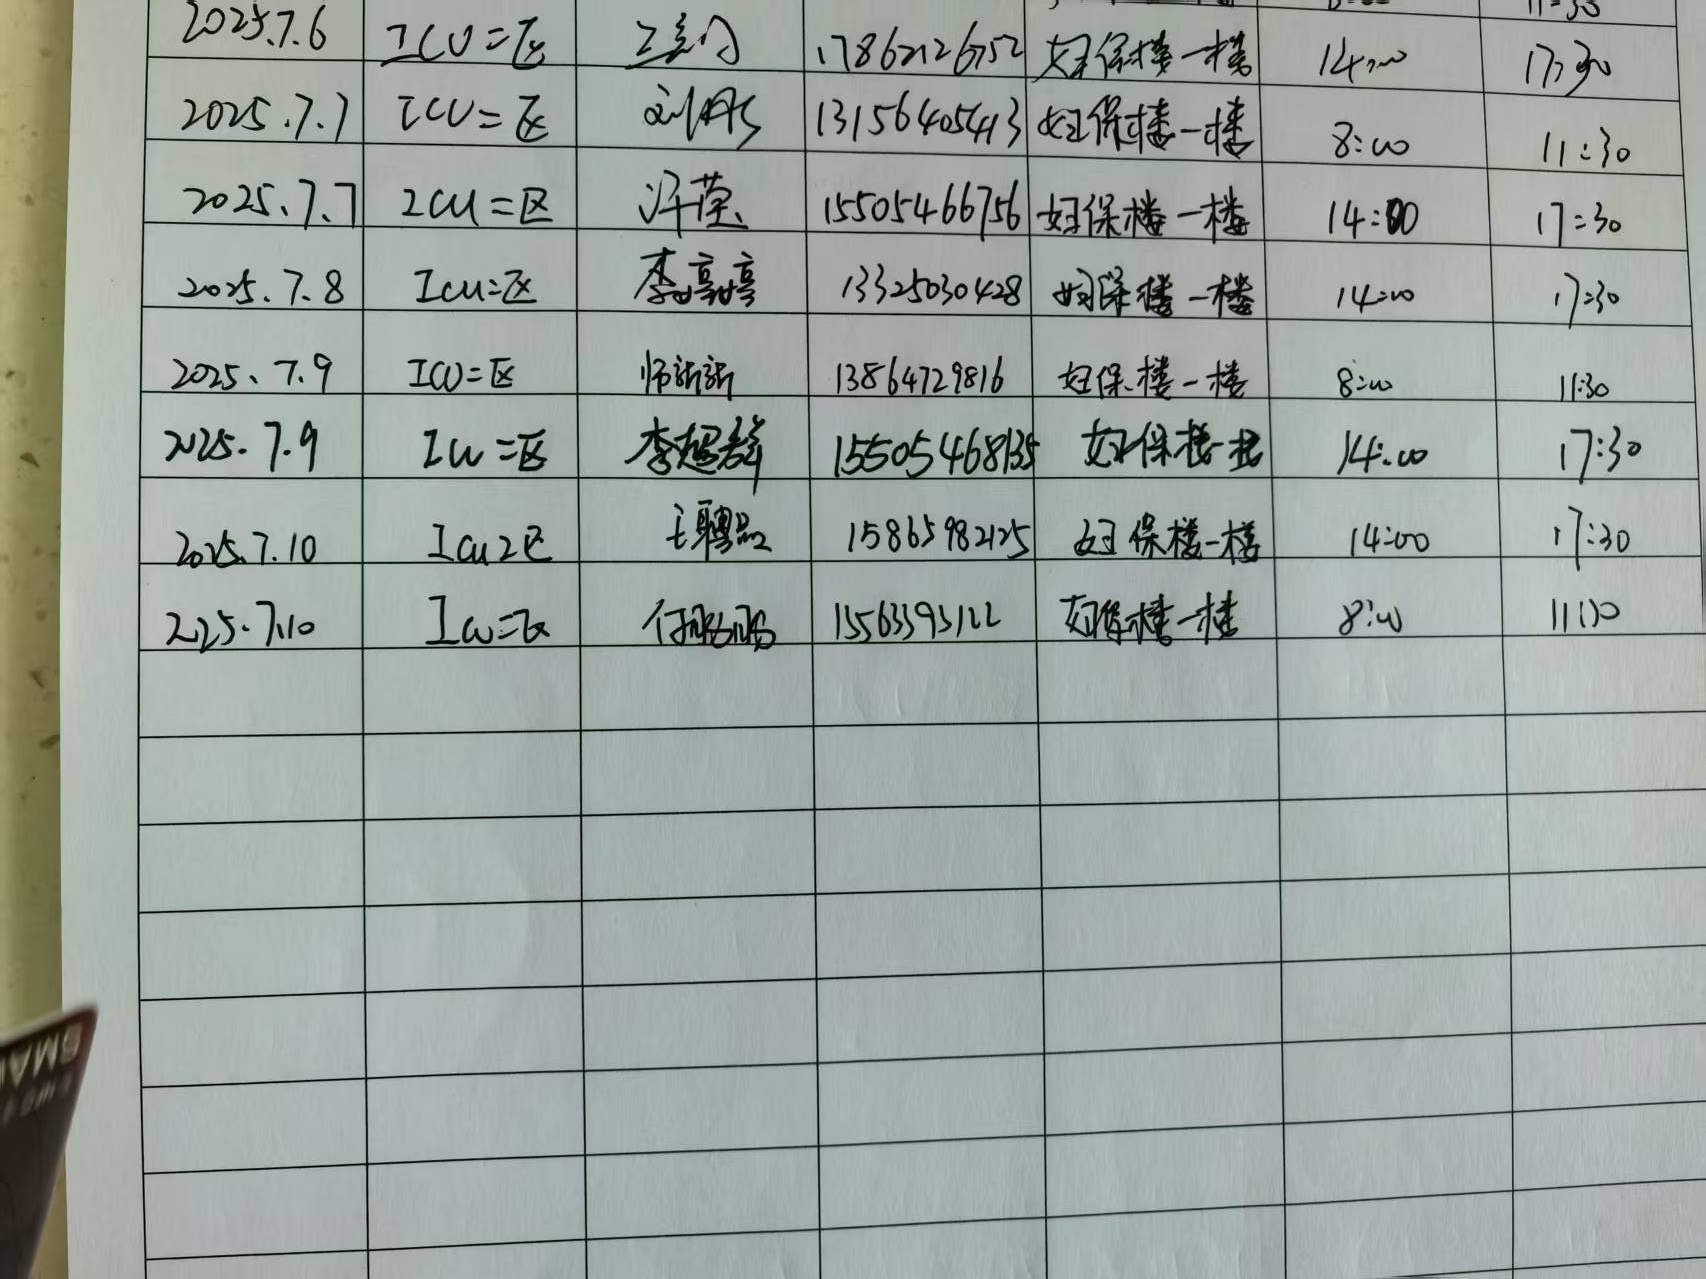 11:30
2025.7.6 ICU二区 17862126752 妇保楼一楼 14:00 17:30
2025.7.7 ICU二区 刘彤 13156405413 妇保楼一楼 8:00 11:30
2025.7.7 ICU二区 许莹 15505466756 妇保楼一楼 14:00 17:30
2025.7.8 ICU二区 李婷婷 13325030428 妇保楼一楼 14:00 17:30
2025.7.9 ICU二区 师新新 13864729816 妇保楼一楼 8:00 11:30
2025.7.9 ICU二区 李超群 15505468135 妇保楼一楼 14:00 17:30
2025.7.10 ICU2区 王聘品 15865982125 妇保楼一楼 14:00 17:30
2025.7.10 ICU二区 付聪聪 15563395122 妇保楼一楼 8:00 11:30